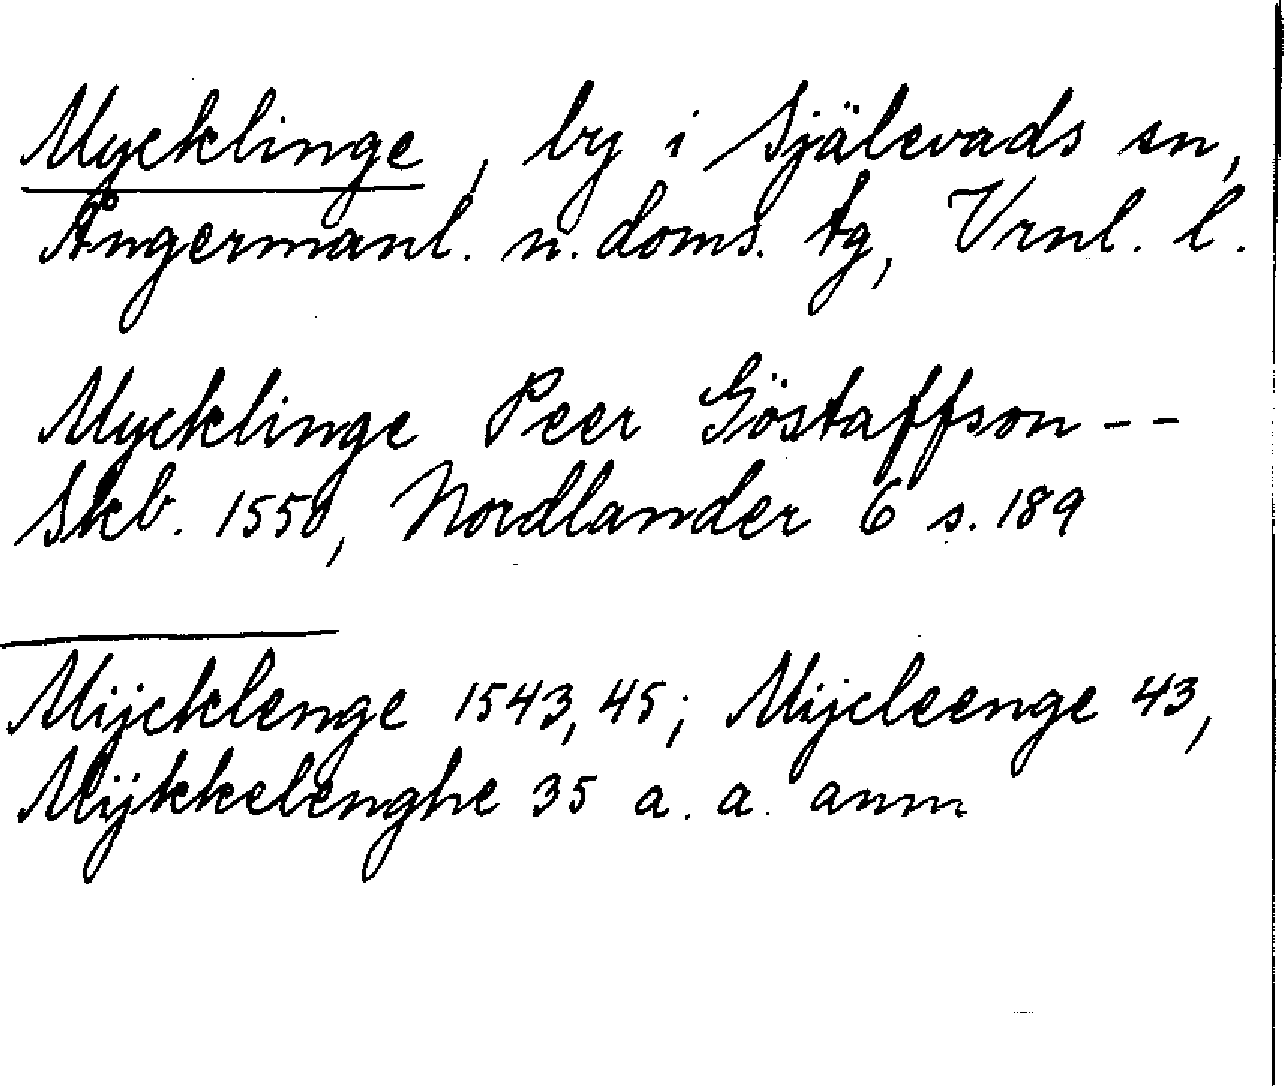 Mycklinge, by i Själevads sn,
Ångermanl. n. doms. tg, Vrnl. l.
Mycklinge Peer Göstaffson - -
Skb. 1550, Nordlander 6 s. 189
Mijcklenge 1543, 45; Mijcleenge 43,
Mÿkkelenghe 35 a. a. anm